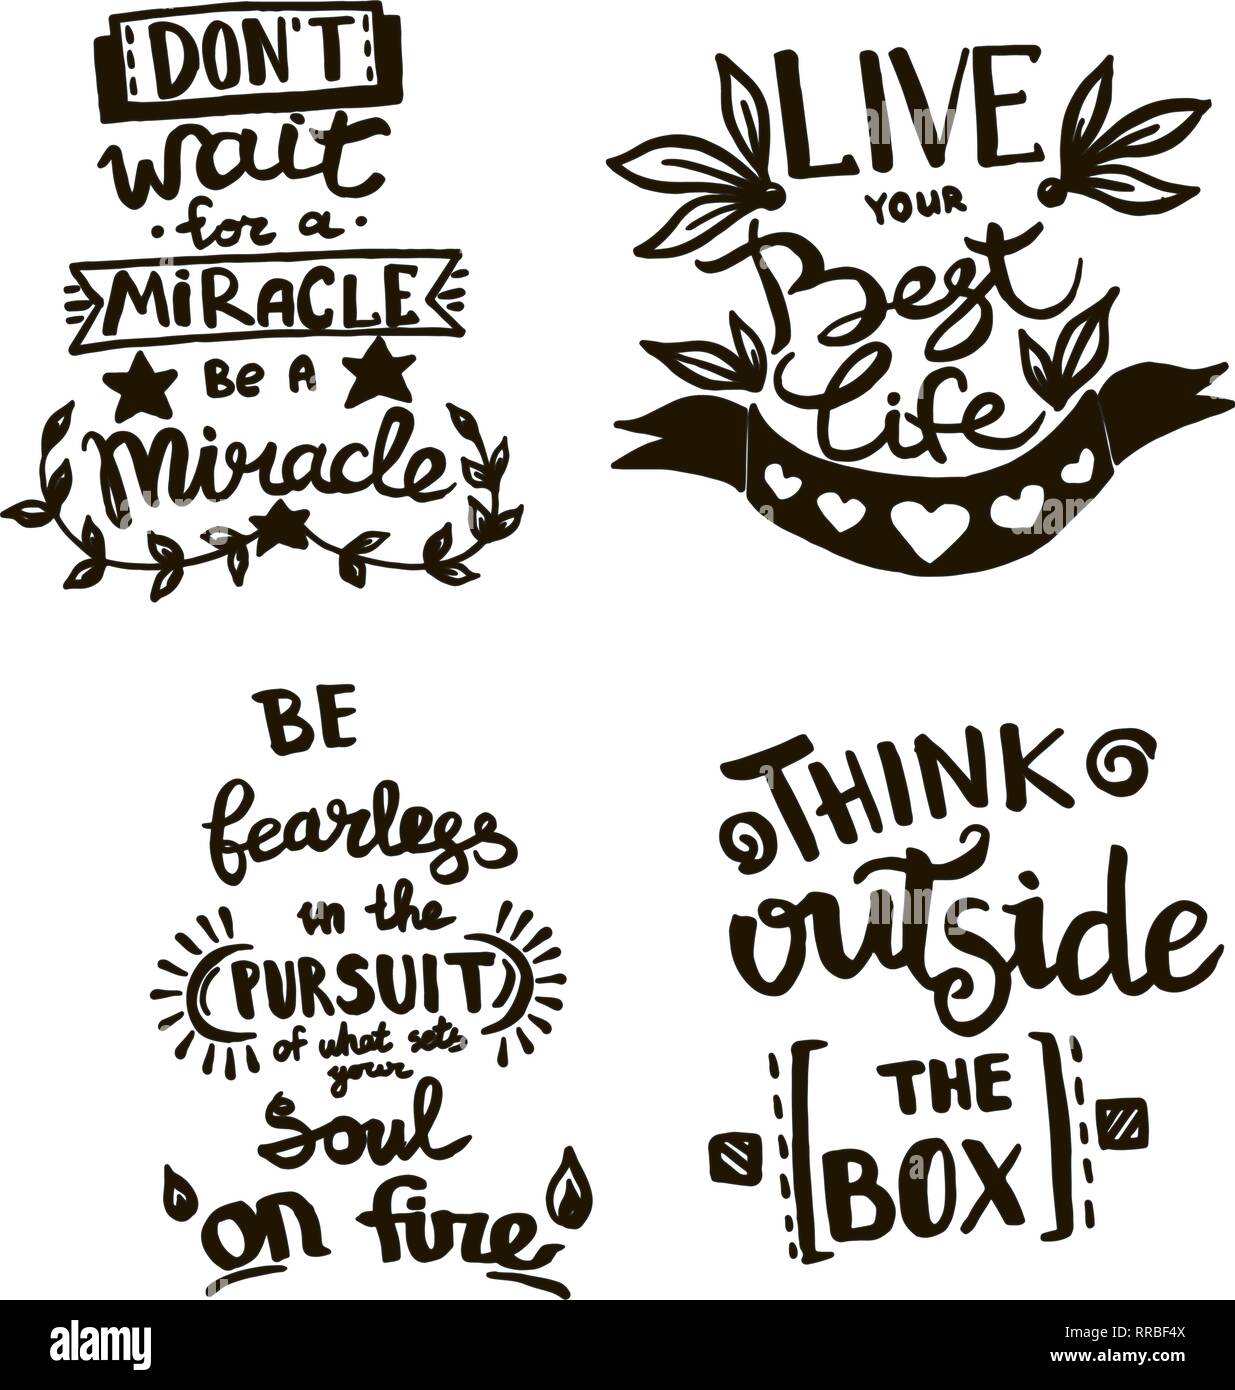 DON'T
wait
for a
MiRACLE
Be A
Miracle
LIVE
YOUR
Best
Life
BE
fearless
in the
PURSUIT
of what sets
your
Soul
on fire
THINK
outside
THE
BOX
alamy
Image ID: RRBF4X
www.alamy.com